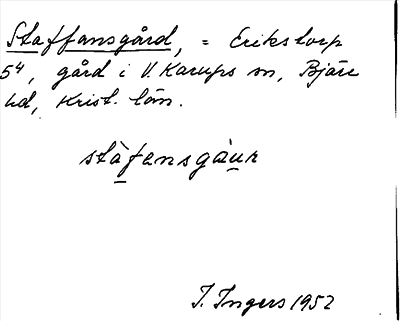 Staffansgård, = Erikstorp
5⁴, gård i V. Karups sn, Bjäre
hd, Krist. län.
stàfansgàuʀ
I. Ingers 1952